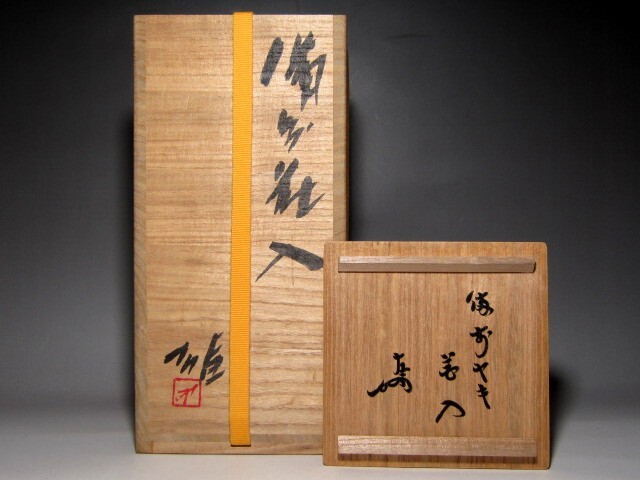 備前花入
雄
備前ヤキ
花入